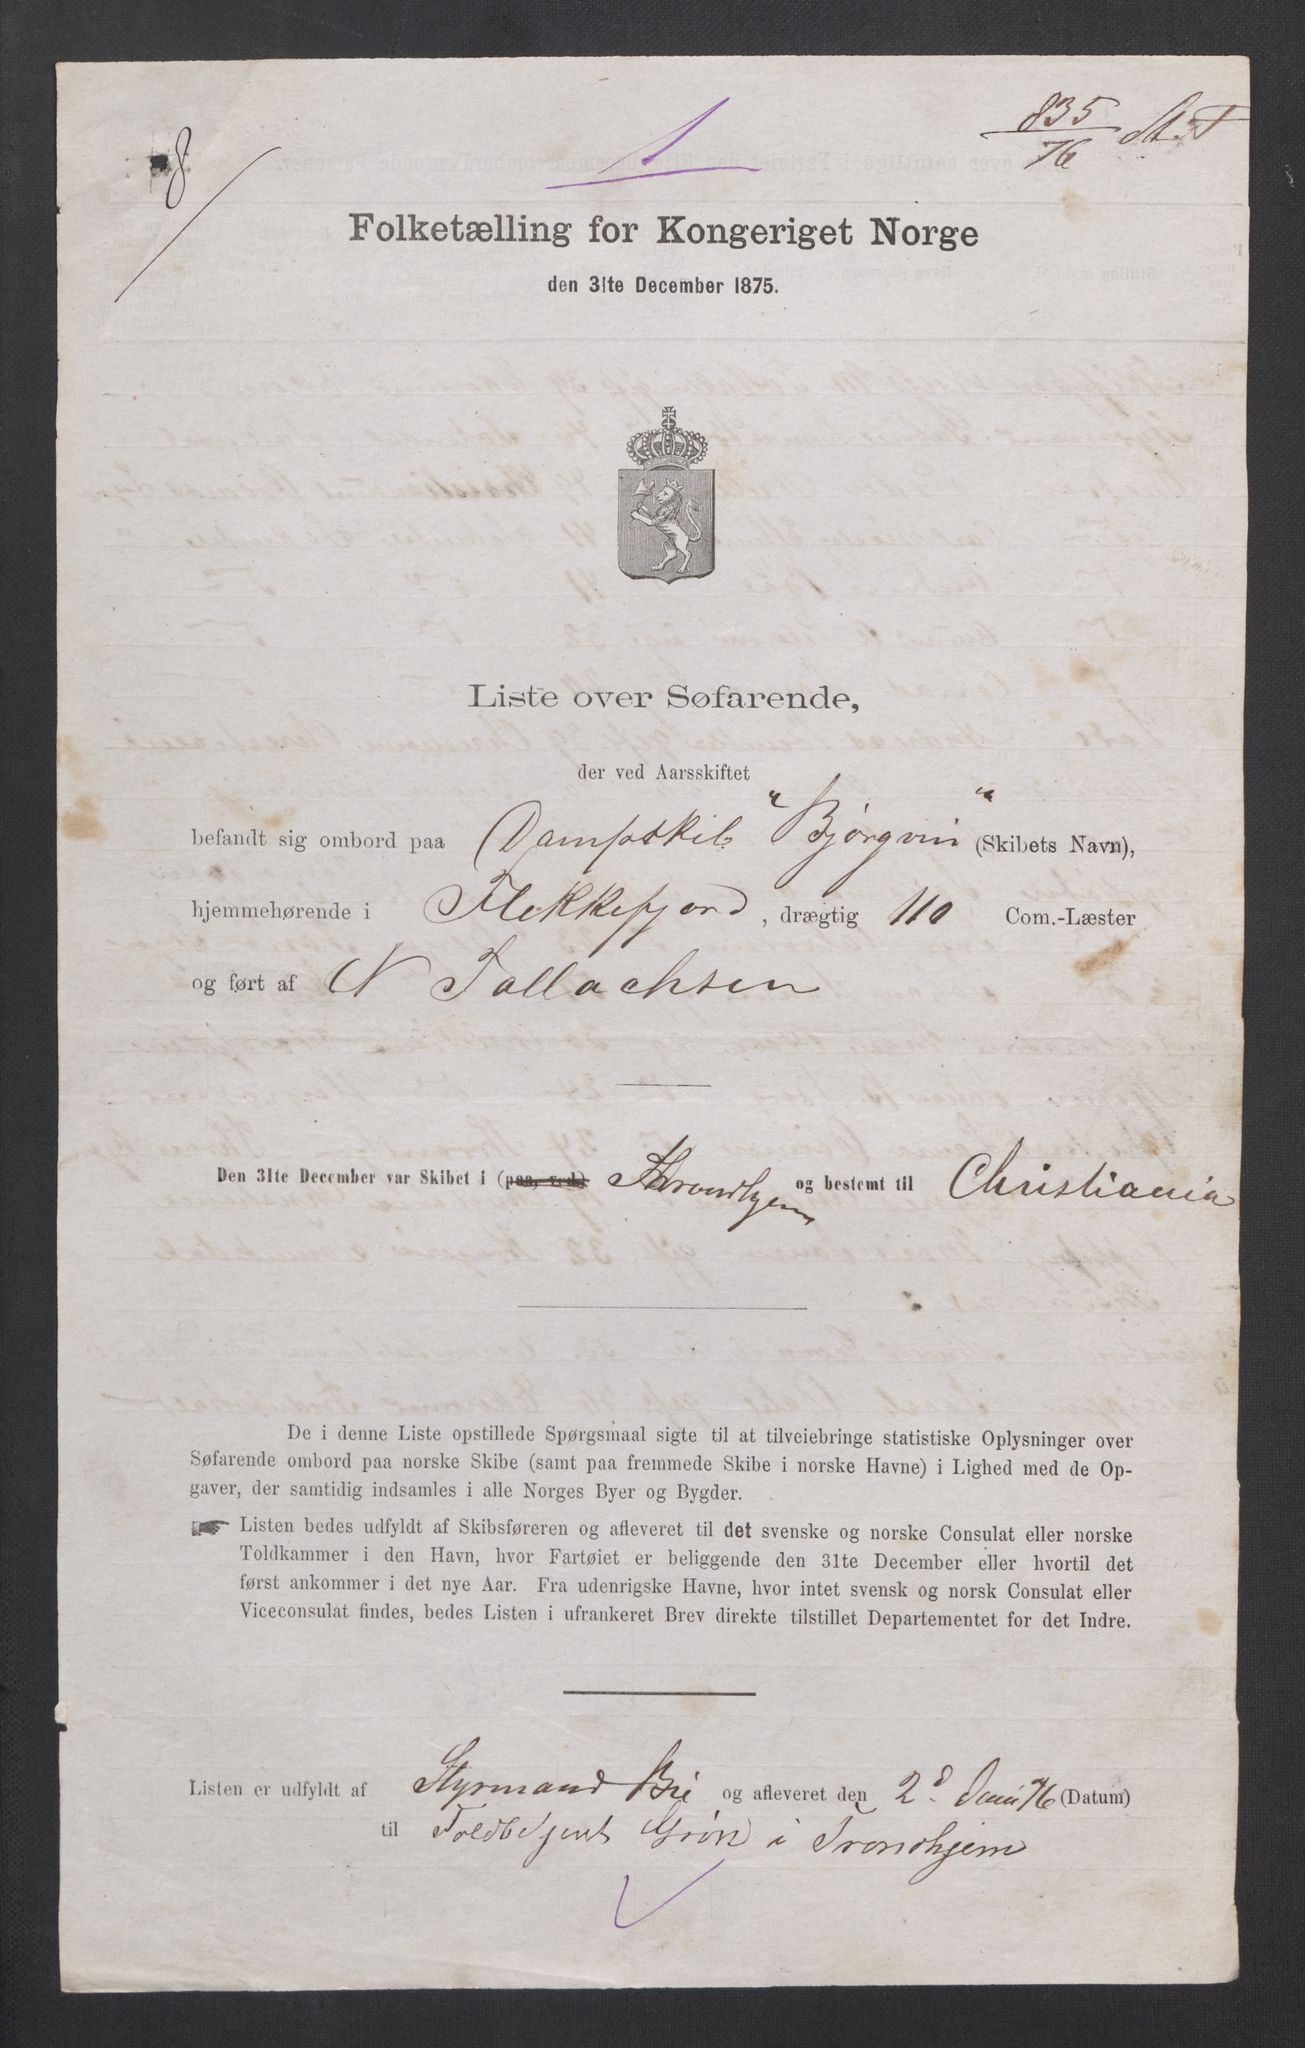 835
76
8
1
Folketælling for Kongeriget Norge
den 31te December 1875.
Liste over Søfarende,
der ved Aarsskiftet
befandt sig ombord paa Dampskib "Bjørgvin" (Skibets Navn),
hjemmehørende i Flekkefjord, drægtig 110 Com.-Læster
og ført af N Tallachsen
Den 31te December var Skibet i (paa, ved) Throndhjem og bestemt til Christiania
De i denne Liste opstillede Spørgsmaal sigte til at tilveiebringe statistiske Oplysninger over
Søfarende ombord paa norske Skibe (samt paa fremmede Skibe i norske Havne) i Lighed med de Op-
gaver, der samtidig indsamles i alle Norges Byer og Bygder.
Listen bedes udfyldt af Skibsføreren og afleveret til det svenske og norske Consulat eller norske
Toldkammer i den Havn, hvor Fartøiet er beliggende den 31te December eller hvortil det
først ankommer i det nye Aar. Fra udenrigske Havne, hvor intet svensk og norsk Consulat eller
Viceconsulat findes, bedes Listen i ufrankeret Brev direkte tilstillet Departementet for det Indre.
Listen er udfyldt af Styrmand Bie og afleveret den 2d 76 (Datum)
til Toldbetjent Grøn i Trondhjem